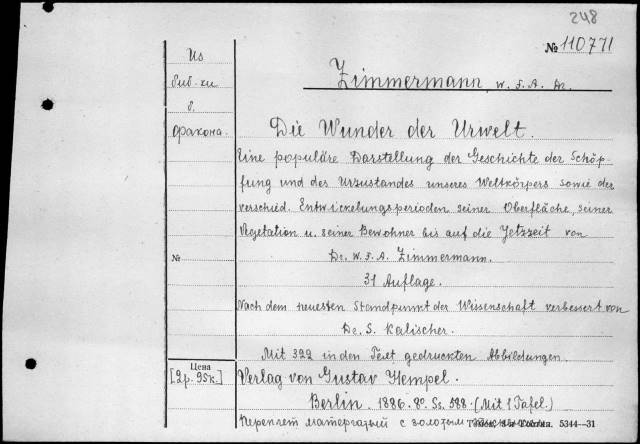 248
№ 110771
Из
биб-ки
б.
дракона.
Zimmermann, W. F. A. Dr.
Die Wunder der Urwelt.
Eine populäre Darstellung der Geschichte der Schöp-
fung und des Urzustandes unseres Weltkörpers sowie der
verschied. Entwickelungsperioden seiner Oberfläche, seiner
Vegetation u. seiner Bewohner bis auf die Jetzzeit von
Dr. W. F. A. Zimmermann.
№
31 Auflage.
Nach dem neuesten Standpunkt der Wissenschaft verbessert von
Dr. S. Kalischer.
Mit 322 in den Text gedruckten Abbildungen.
Цена
[2р. 95к.]
Verlag von Gustav Hempel.
Berlin. 1886. 8°. Ss. 588. (Mit 1 Tafel.)
Переплет с золотым 5344—31